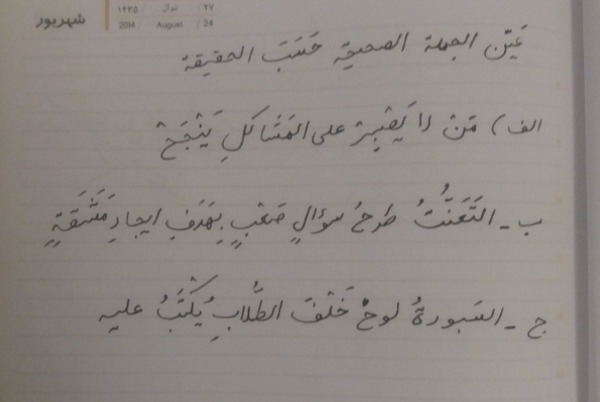 شهریور
۲۷ / شوال / ۱۴۳۵
24 / August / 2014
عَيِّن الجملة الصحيحة حَسَبَ الحقيقة
الف) مَنْ لا يَصْبِرْ على المَشاكلِ يَنْجَحْ
ب - التَعَنُّتُ طَرحُ سؤالٍ صَعْبٍ بِهَدَفِ ايجادِ مَشَقَّةٍ
ج - السَبورةُ لوحٌ خَلْفَ الطُّلابِ يُكْتَبُ عليه